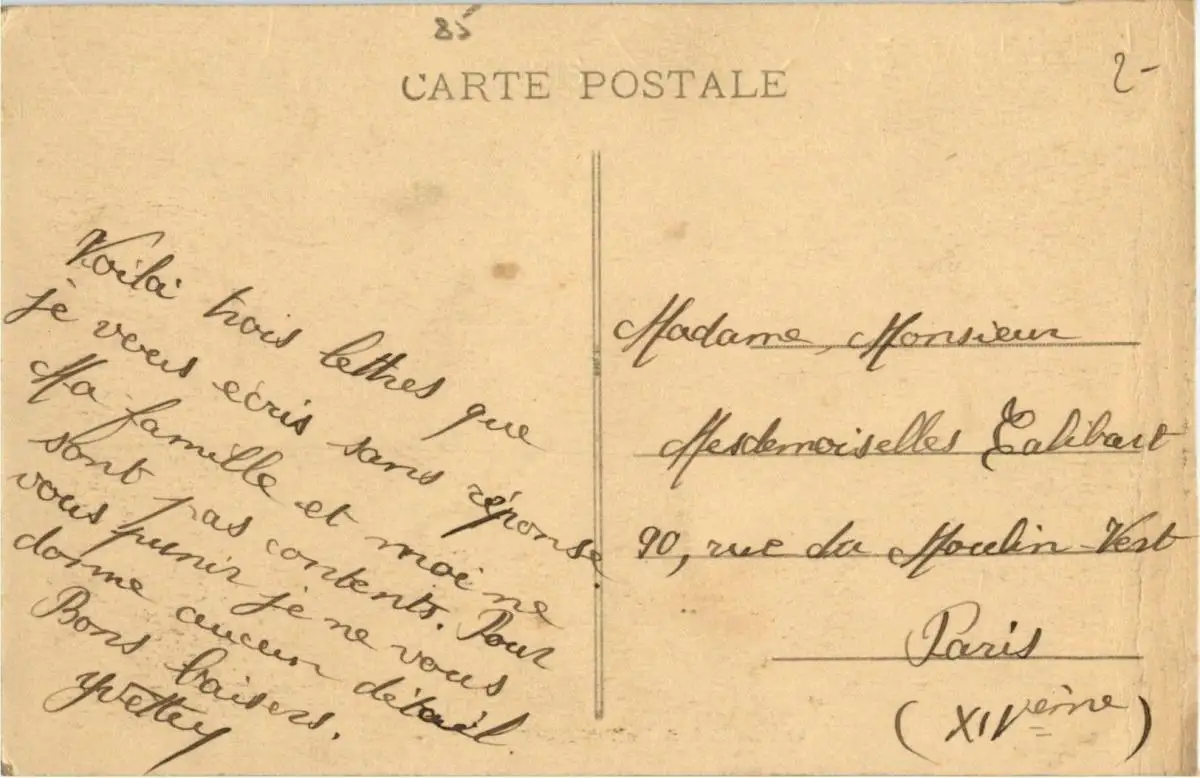 85
CARTE POSTALE
2-
Voilà trois lettres que
je vous écris sans réponse
Ma famille et moi ne
sont pas contents. Pour
vous punir je ne vous
donne aucun détail.
Bons baisers.
Yvette
Madame, Monsieur
Mesdemoiselles Talibart
90, rue du Moulin-Vert
Paris
(XIVème)